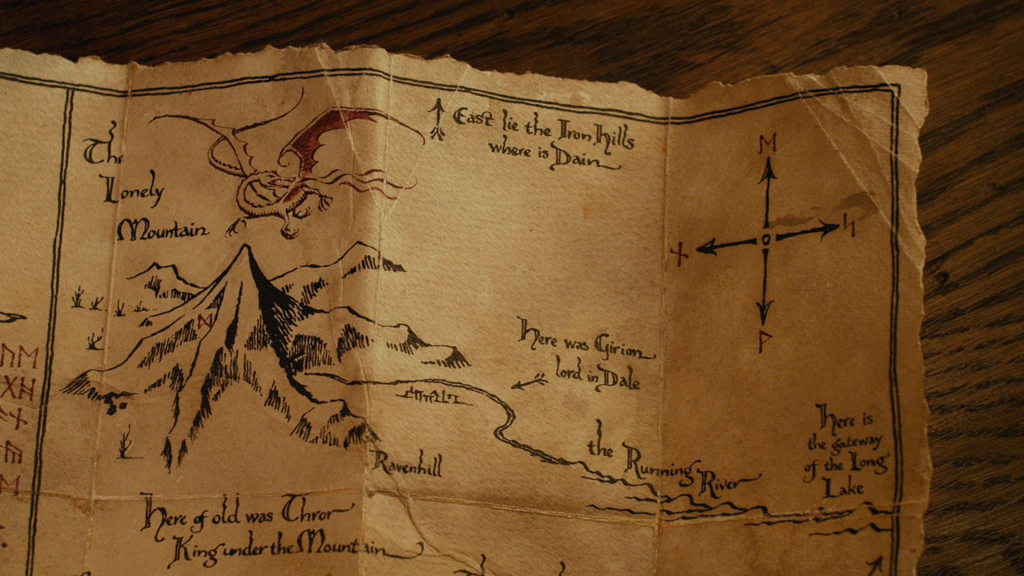 The
Lonely
Mountain
East lie the Iron Hills
where is Dain
ᛖ
ᚾ
ᛋ
ᚹ
ᛞ
Here was Girion
lord in Dale
Here is
the gateway
of the Long
Lake
the Running River
Ravenhill
Here of old was Thror
King under the Mountain